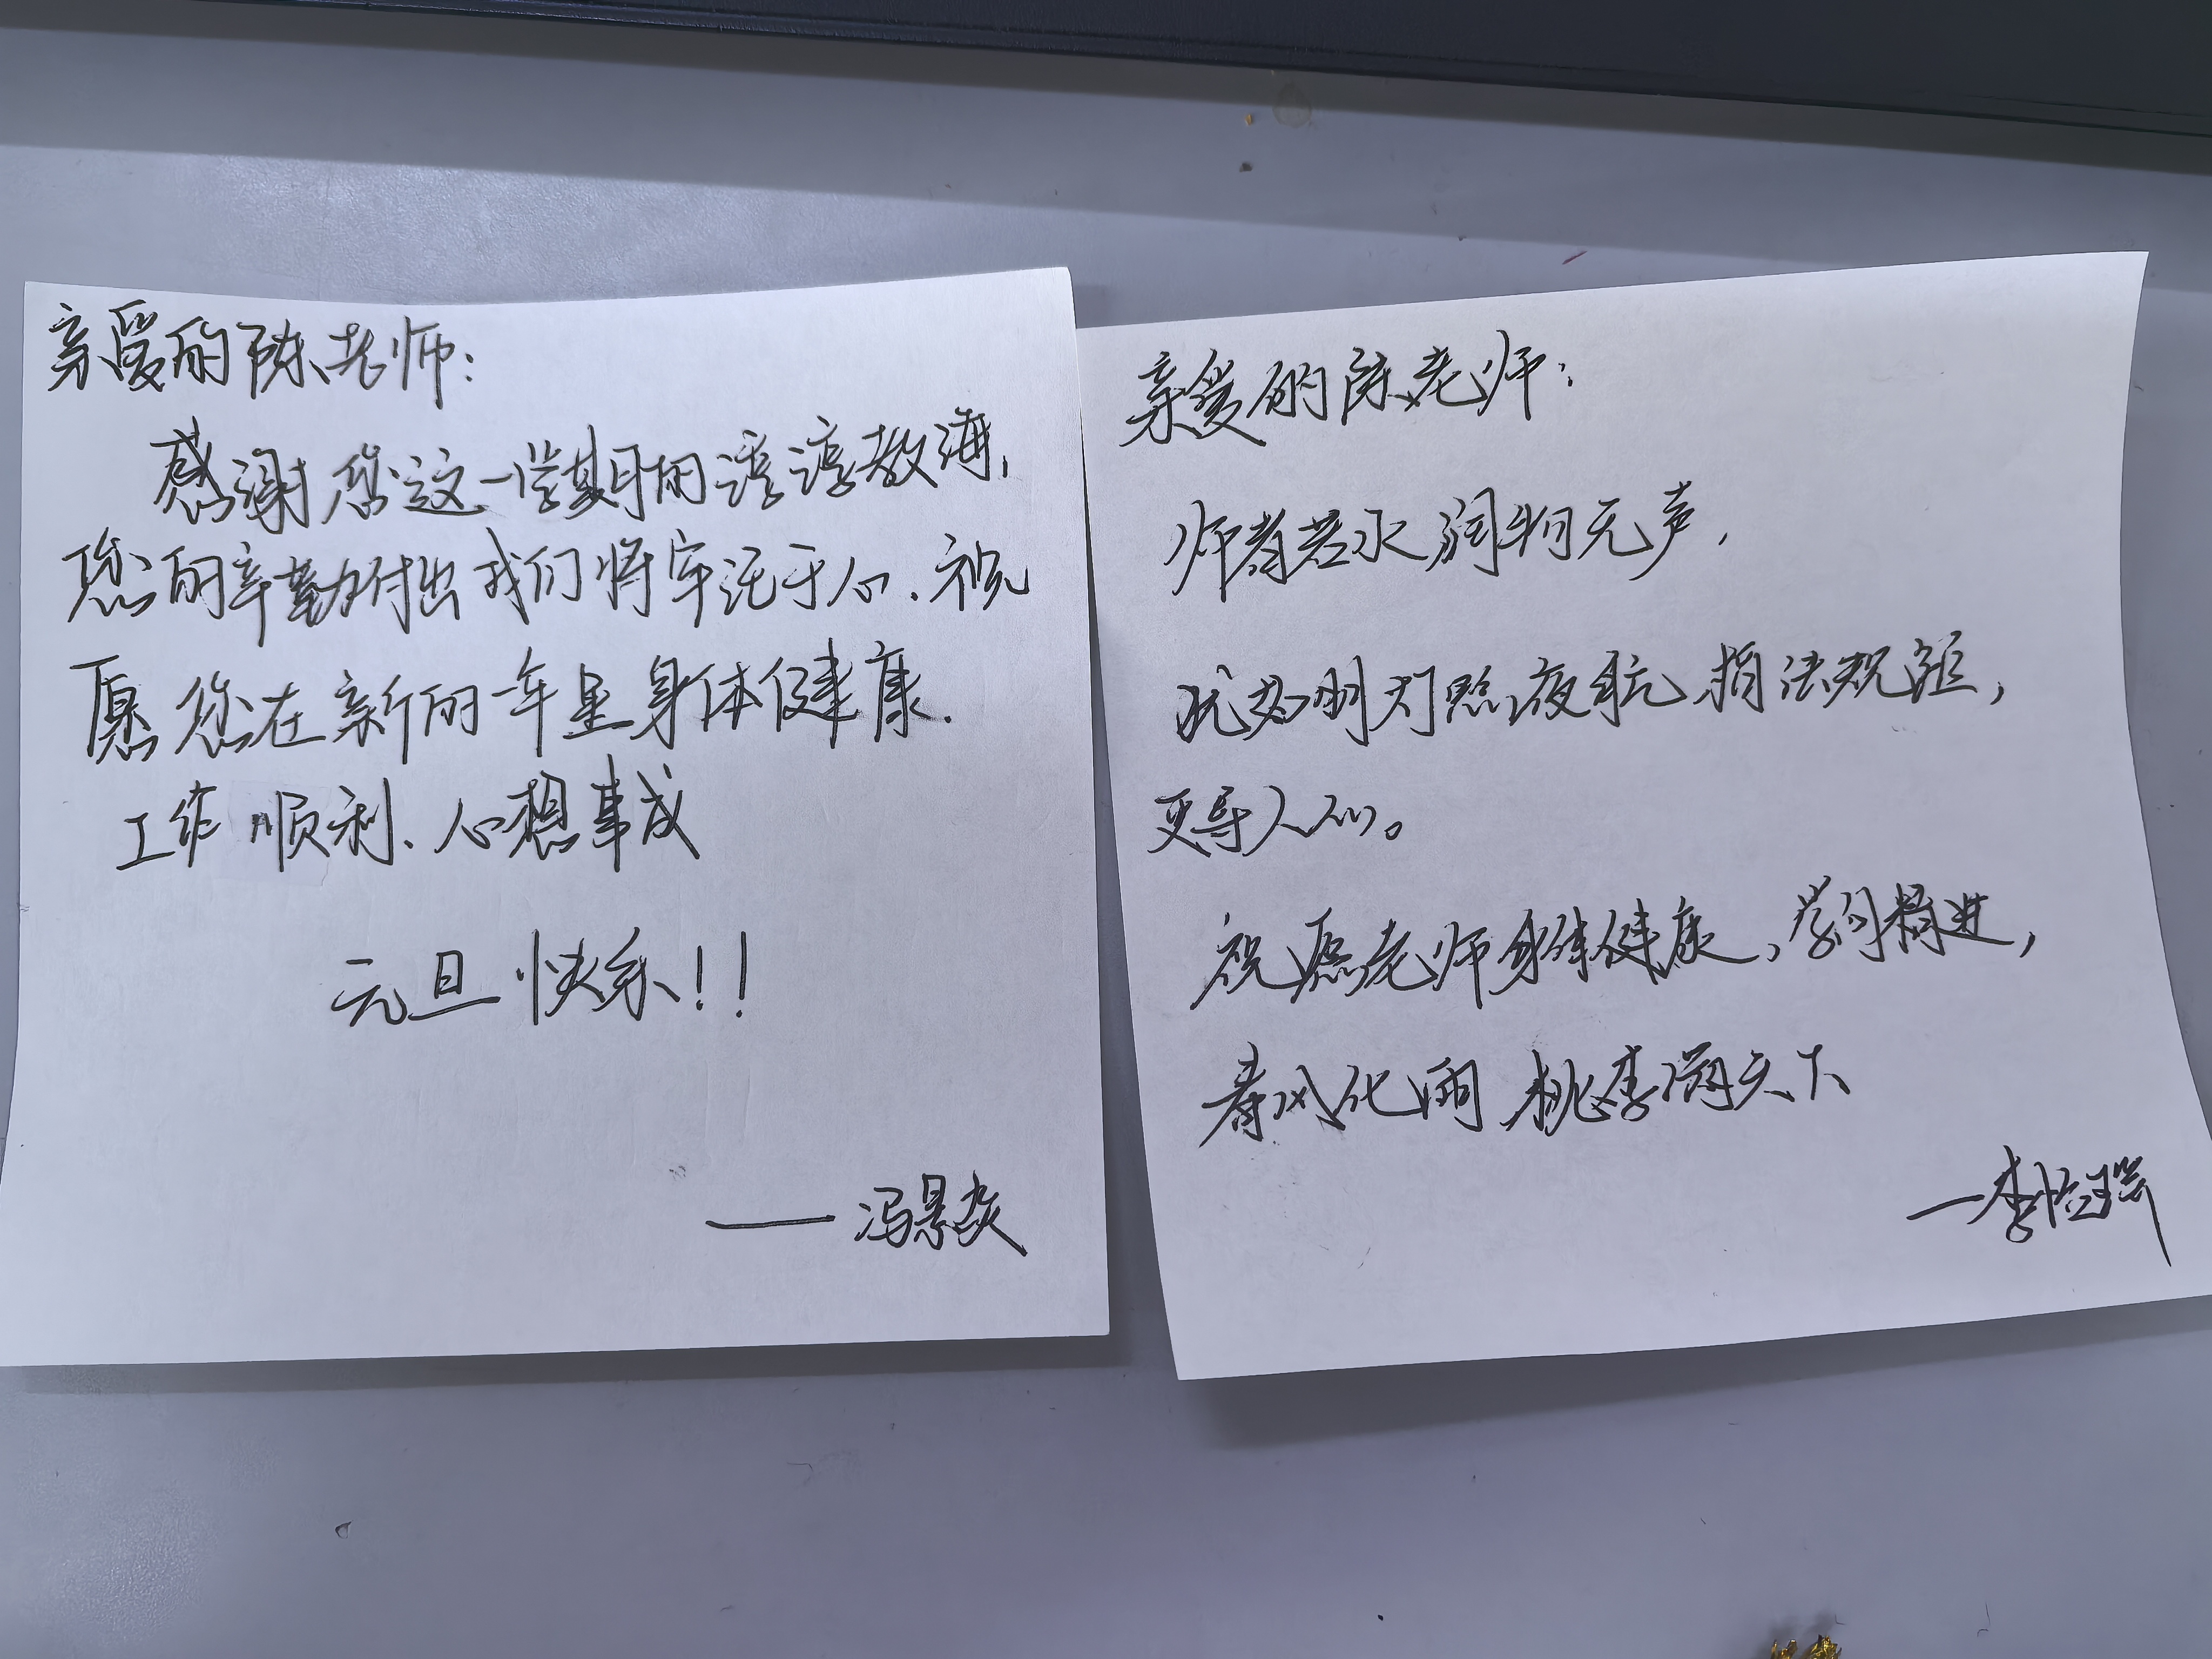 亲爱的陈老师：
感谢您这一学期的谆谆教诲，
您的辛勤付出我们将牢记于心．祝
愿您在新的一年里身体健康．
工作顺利、心想事成
元旦快乐！！
——冯景焱
亲爱的陈老师：
师者若水 润物无声，
犹如明灯照夜航 指法规矩，
更导人心。
祝愿老师身体健康、学问精进，
春风化雨 桃李满天下
—李怡